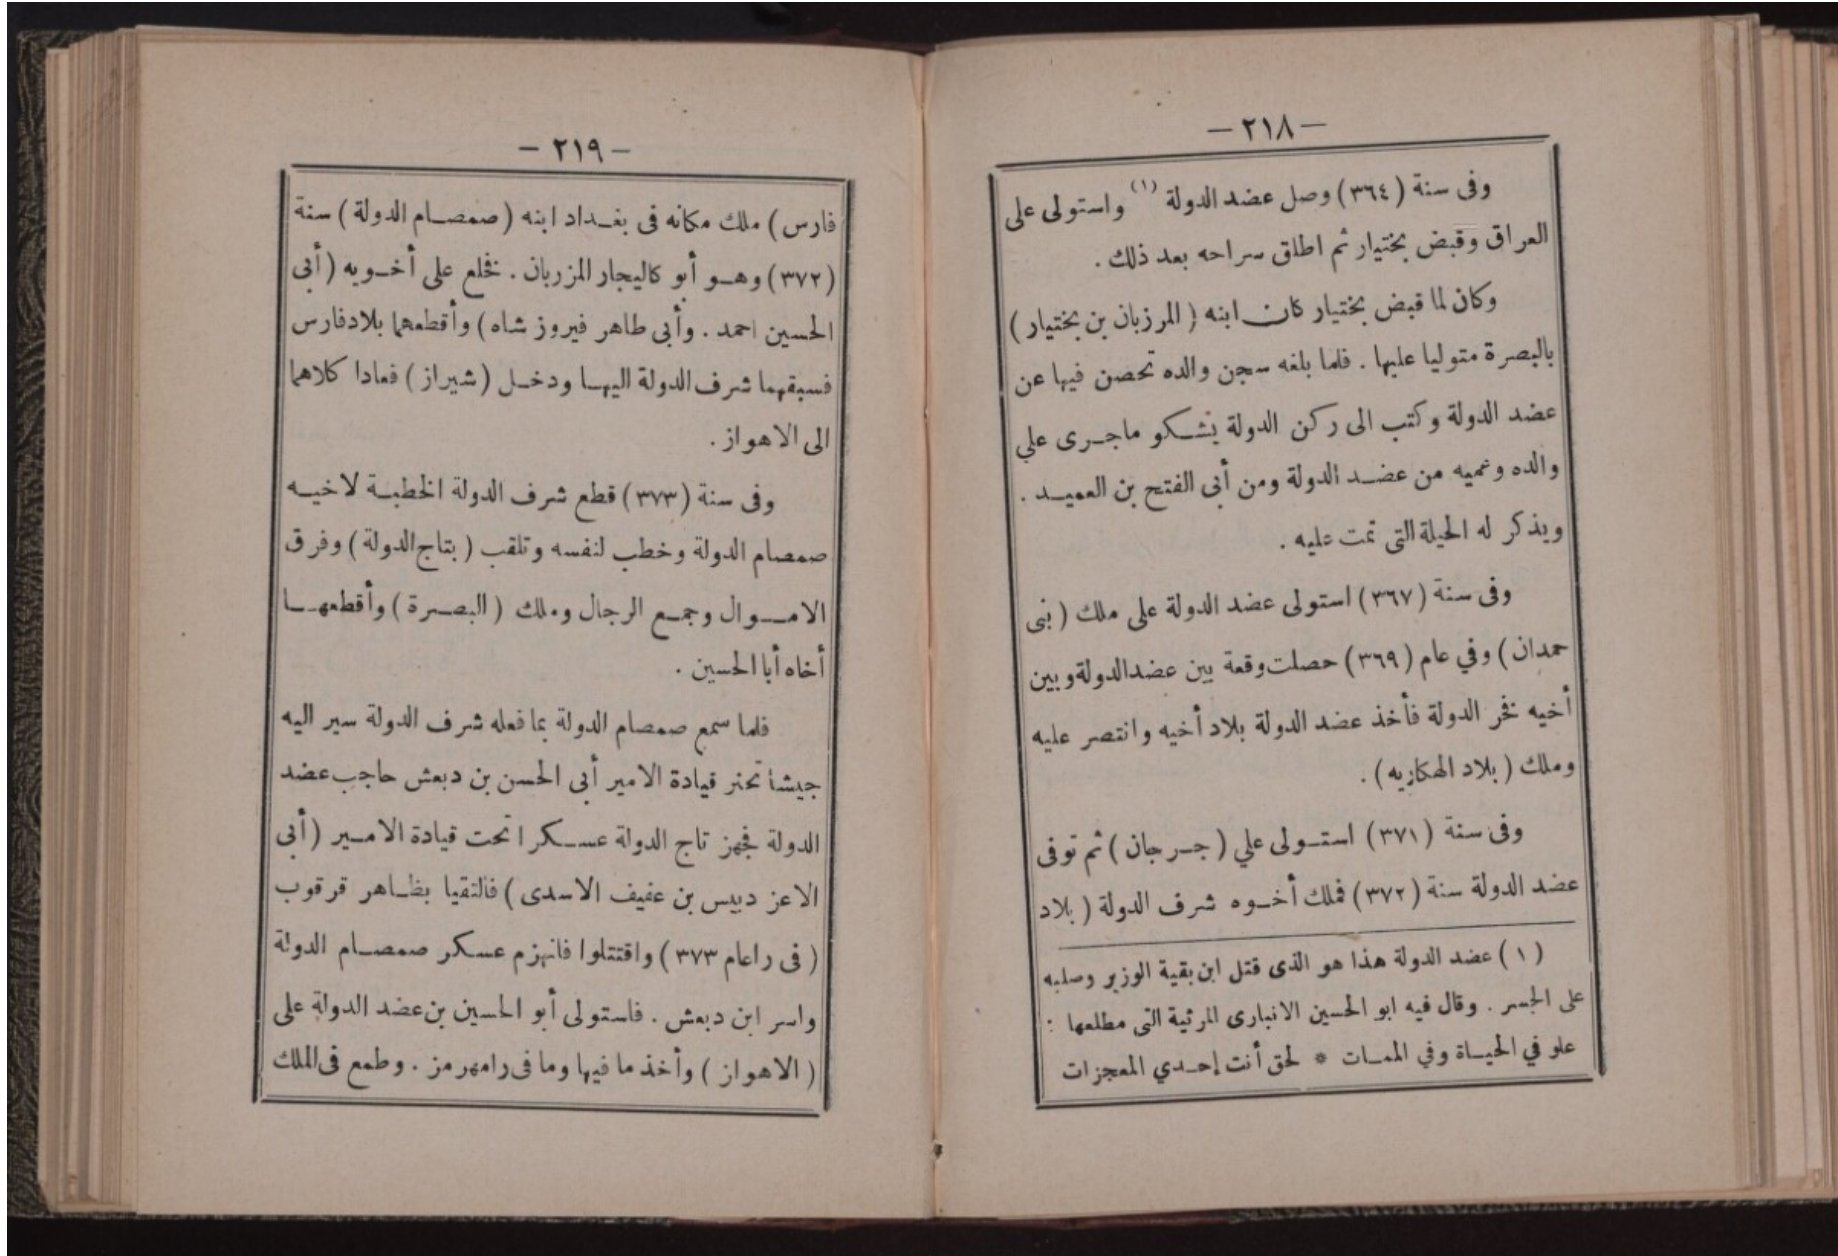 — ٢١٨ —
وفى سنة (٣٦٤) وصل عضد الدولة (١) واستولى على
العراق وقبض بختيار ثم اطلق سراحه بعد ذلك .
وكان لما قبض بختيار كان ابنه ( المرزبان بن بختيار )
بالبصرة متوليا عليها . فلما بلغه سجن والده تحصن فيها عن
عضد الدولة وكتب الى ركن الدولة يشكو ماجرى علي
والده وعميه من عضد الدولة ومن أبى الفتح بن العميد .
ويذكر له الحيلة التى تمت عليه .
وفى سنة (٣٦٧) استولى عضد الدولة على ملك ( بنى
حمدان ) وفي عام (٣٦٩) حصلت وقعة بين عضدالدولة وبين
أخيه فخر الدولة فأخذ عضد الدولة بلاد أخيه وانتصر عليه
وملك ( بلاد الهكازيه ) .
وفى سنة (٣٧١) استولى علي ( جرجان ) ثم توفى
عضد الدولة سنة (٣٧٢) فملك أخوه شرف الدولة ( بلاد
( ١ ) عضد الدولة هذا هو الذى قتل ابن بقية الوزير وصلبه
على الجسر . وقال فيه ابو الحسين الانبارى المرثية التى مطلعها :
علو في الحياة وفي الممات * لحق أنت إحدي المعجزات
— ٢١٩ —
فارس ) ملك مكانه فى بغداد ابنه ( صمصام الدولة ) سنة
(٣٧٢) وهو أبو كاليجار المزربان . فخلع على أخويه ( أبى
الحسين احمد . وأبى طاهر فيروز شاه ) وأقطعهما بلادفارس
فسبقهما شرف الدولة اليها ودخل ( شيراز ) فعادا كلاهما
الى الاهواز .
وفى سنة (٣٧٣) قطع شرف الدولة الخطبة لاخيه
صمصام الدولة وخطب لنفسه وتلقب ( بتاج الدولة ) وفرق
الاموال وجمع الرجال وملك ( البصرة ) وأقطعها
أخاه أبا الحسين .
فلما سمع صمصام الدولة بما فعله شرف الدولة سير اليه
جيشا تحنر قيادة الامير أبى الحسن بن دبعش حاجب عضد
الدولة فجهز تاج الدولة عسكرا تحت قيادة الامير ( أبى
الاعز دبيس بن عفيف الاسدى ) فالتقيا بظاهر قرقوب
( فى راعام ٣٧٣ ) واقتتلوا فانهزم عسكر صمصام الدولة
واسر ابن دبعش . فاستولى أبو الحسين بن عضد الدولة على
( الاهواز ) وأخذ ما فيها وما فى رامهرمز . وطمع فى الملك